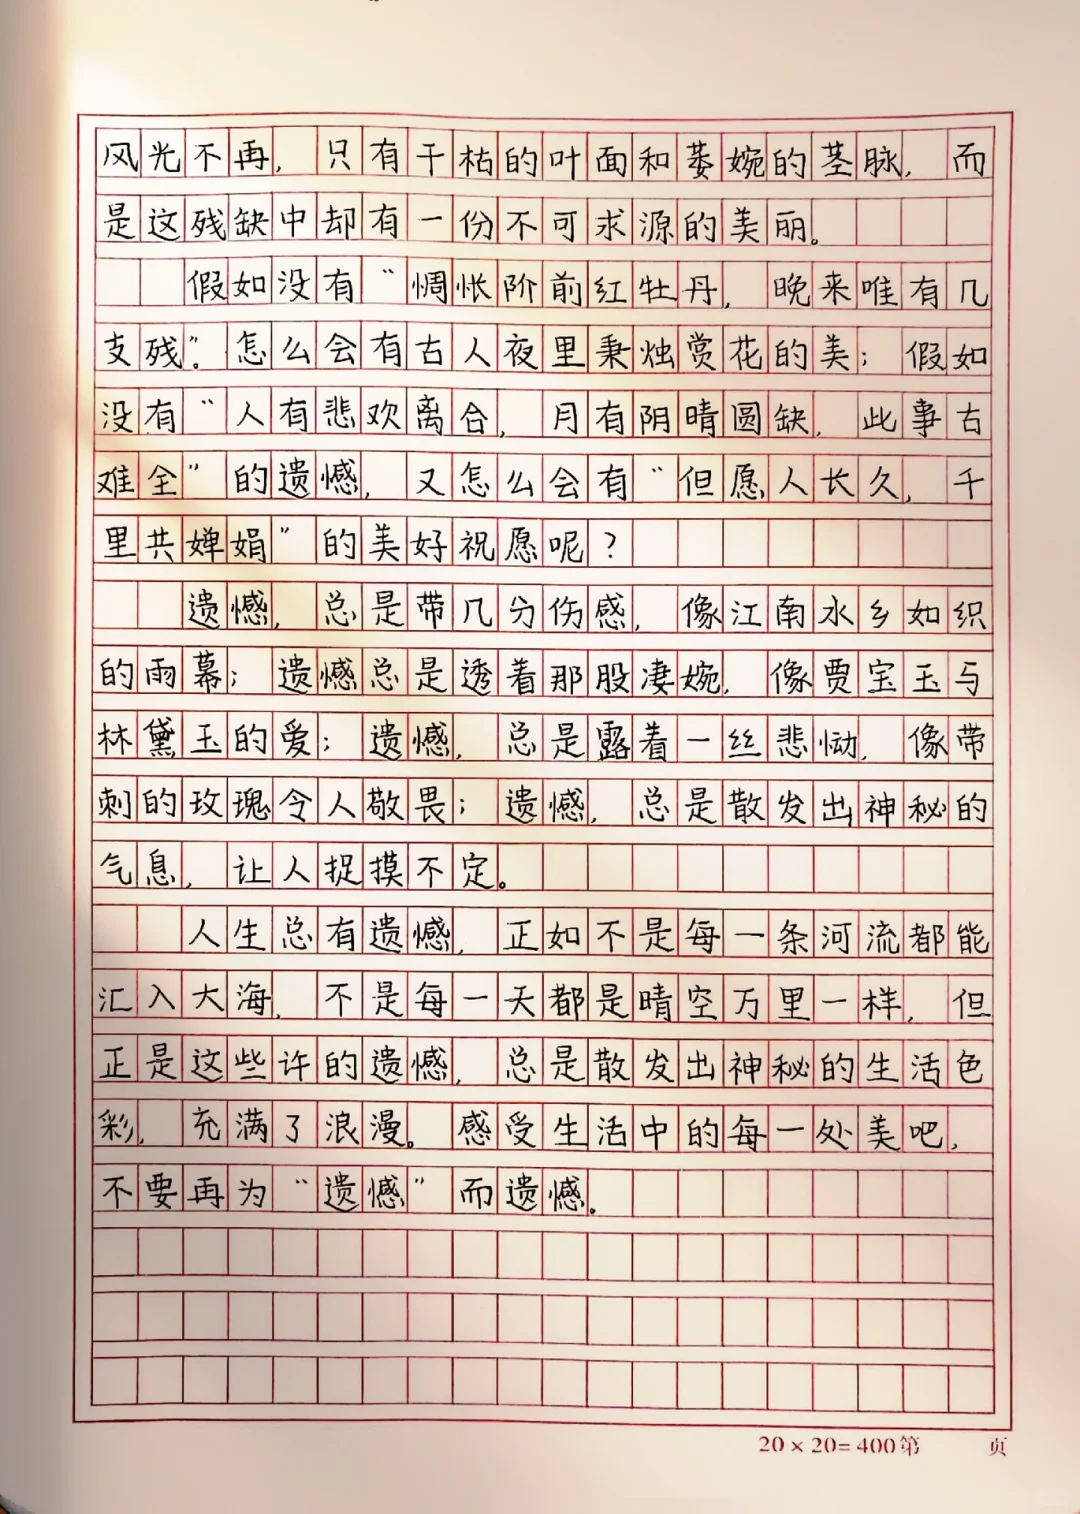 风光不再，只有干枯的叶面和萎婉的茎脉，而
是这残缺中却有一份不可求源的美丽。
假如没有“惆怅阶前红牡丹，晚来唯有几
支残”。怎么会有古人夜里秉烛赏花的美；假如
没有“人有悲欢离合，月有阴晴圆缺，此事古
难全”的遗憾，又怎么会有“但愿人长久，千
里共婵娟”的美好祝愿呢？
遗憾，总是带几分伤感，像江南水乡如织
的雨幕；遗憾总是透着那股凄婉，像贾宝玉与
林黛玉的爱；遗憾，总是露着一丝悲恸，像带
刺的玫瑰令人敬畏；遗憾，总是散发出神秘的
气息，让人捉摸不定。
人生总有遗憾，正如不是每一条河流都能
汇入大海，不是每一天都是晴空万里一样，但
正是这些许的遗憾，总是散发出神秘的生活色
彩，充满了浪漫。感受生活中的每一处美吧，
不要再为“遗憾”而遗憾。
20×20=400第 页